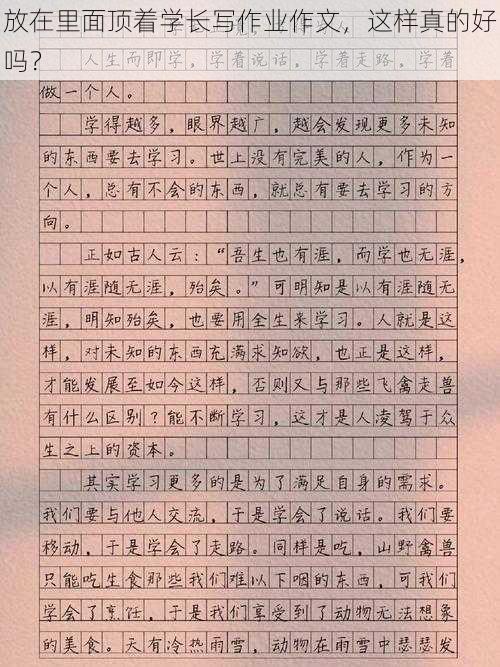 放在里面顶着学长写作业作文，这样真的好
吗？
人生而即学，学着说话，学着走路，学着
做一个人。
学得越多，眼界越广，越会发现更多未知
的东西要去学习。世上没有完美的人，作为一
个人，总有不会的东西，就总有要去学习的方
向。
正如古人云：“吾生也有涯，而学也无涯，
以有涯随无涯，殆矣。”可明知是以有涯随无
涯，明知殆矣，也要用全生来学习。人就是这
样，对未知的东西充满求知欲，也正是这样，
才能发展至如今这样，否则又与那些飞禽走兽
有什么区别？能不断学习，这才是人凌驾于众
生之上的资本。
其实学习更多的是为了满足自身的需求。
我们要与他人交流，于是学会了说话。我们要
移动，于是学会了走路。同样是吃，山野禽兽
只能吃生食那些我们难以下咽的东西，可我们
学会了烹饪，于是我们享受到了动物无法想象
的美食。天有冷热雨雪，动物在雨雪中瑟瑟发